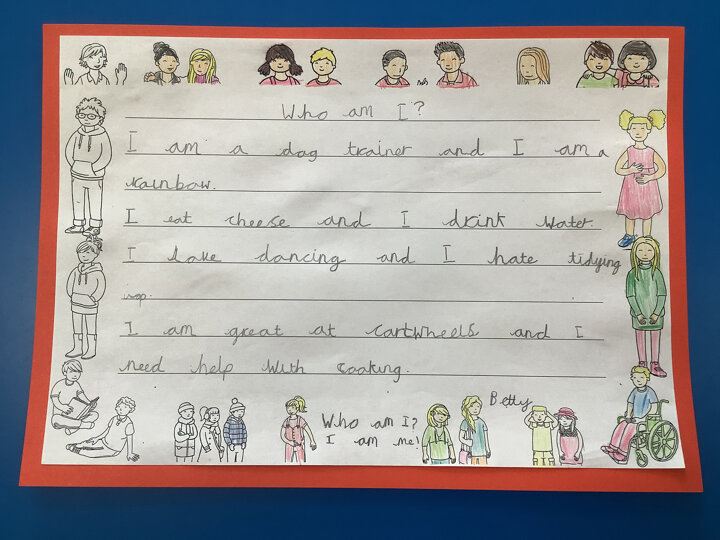 Who am I?
I am a dog trainer and I am a
rainbow.
I eat cheese and I drink water.
I love dancing and I hate tidying
up.
I am great at cartwheels and I
need help with cooking.
Betty
Who am I?
I am me!